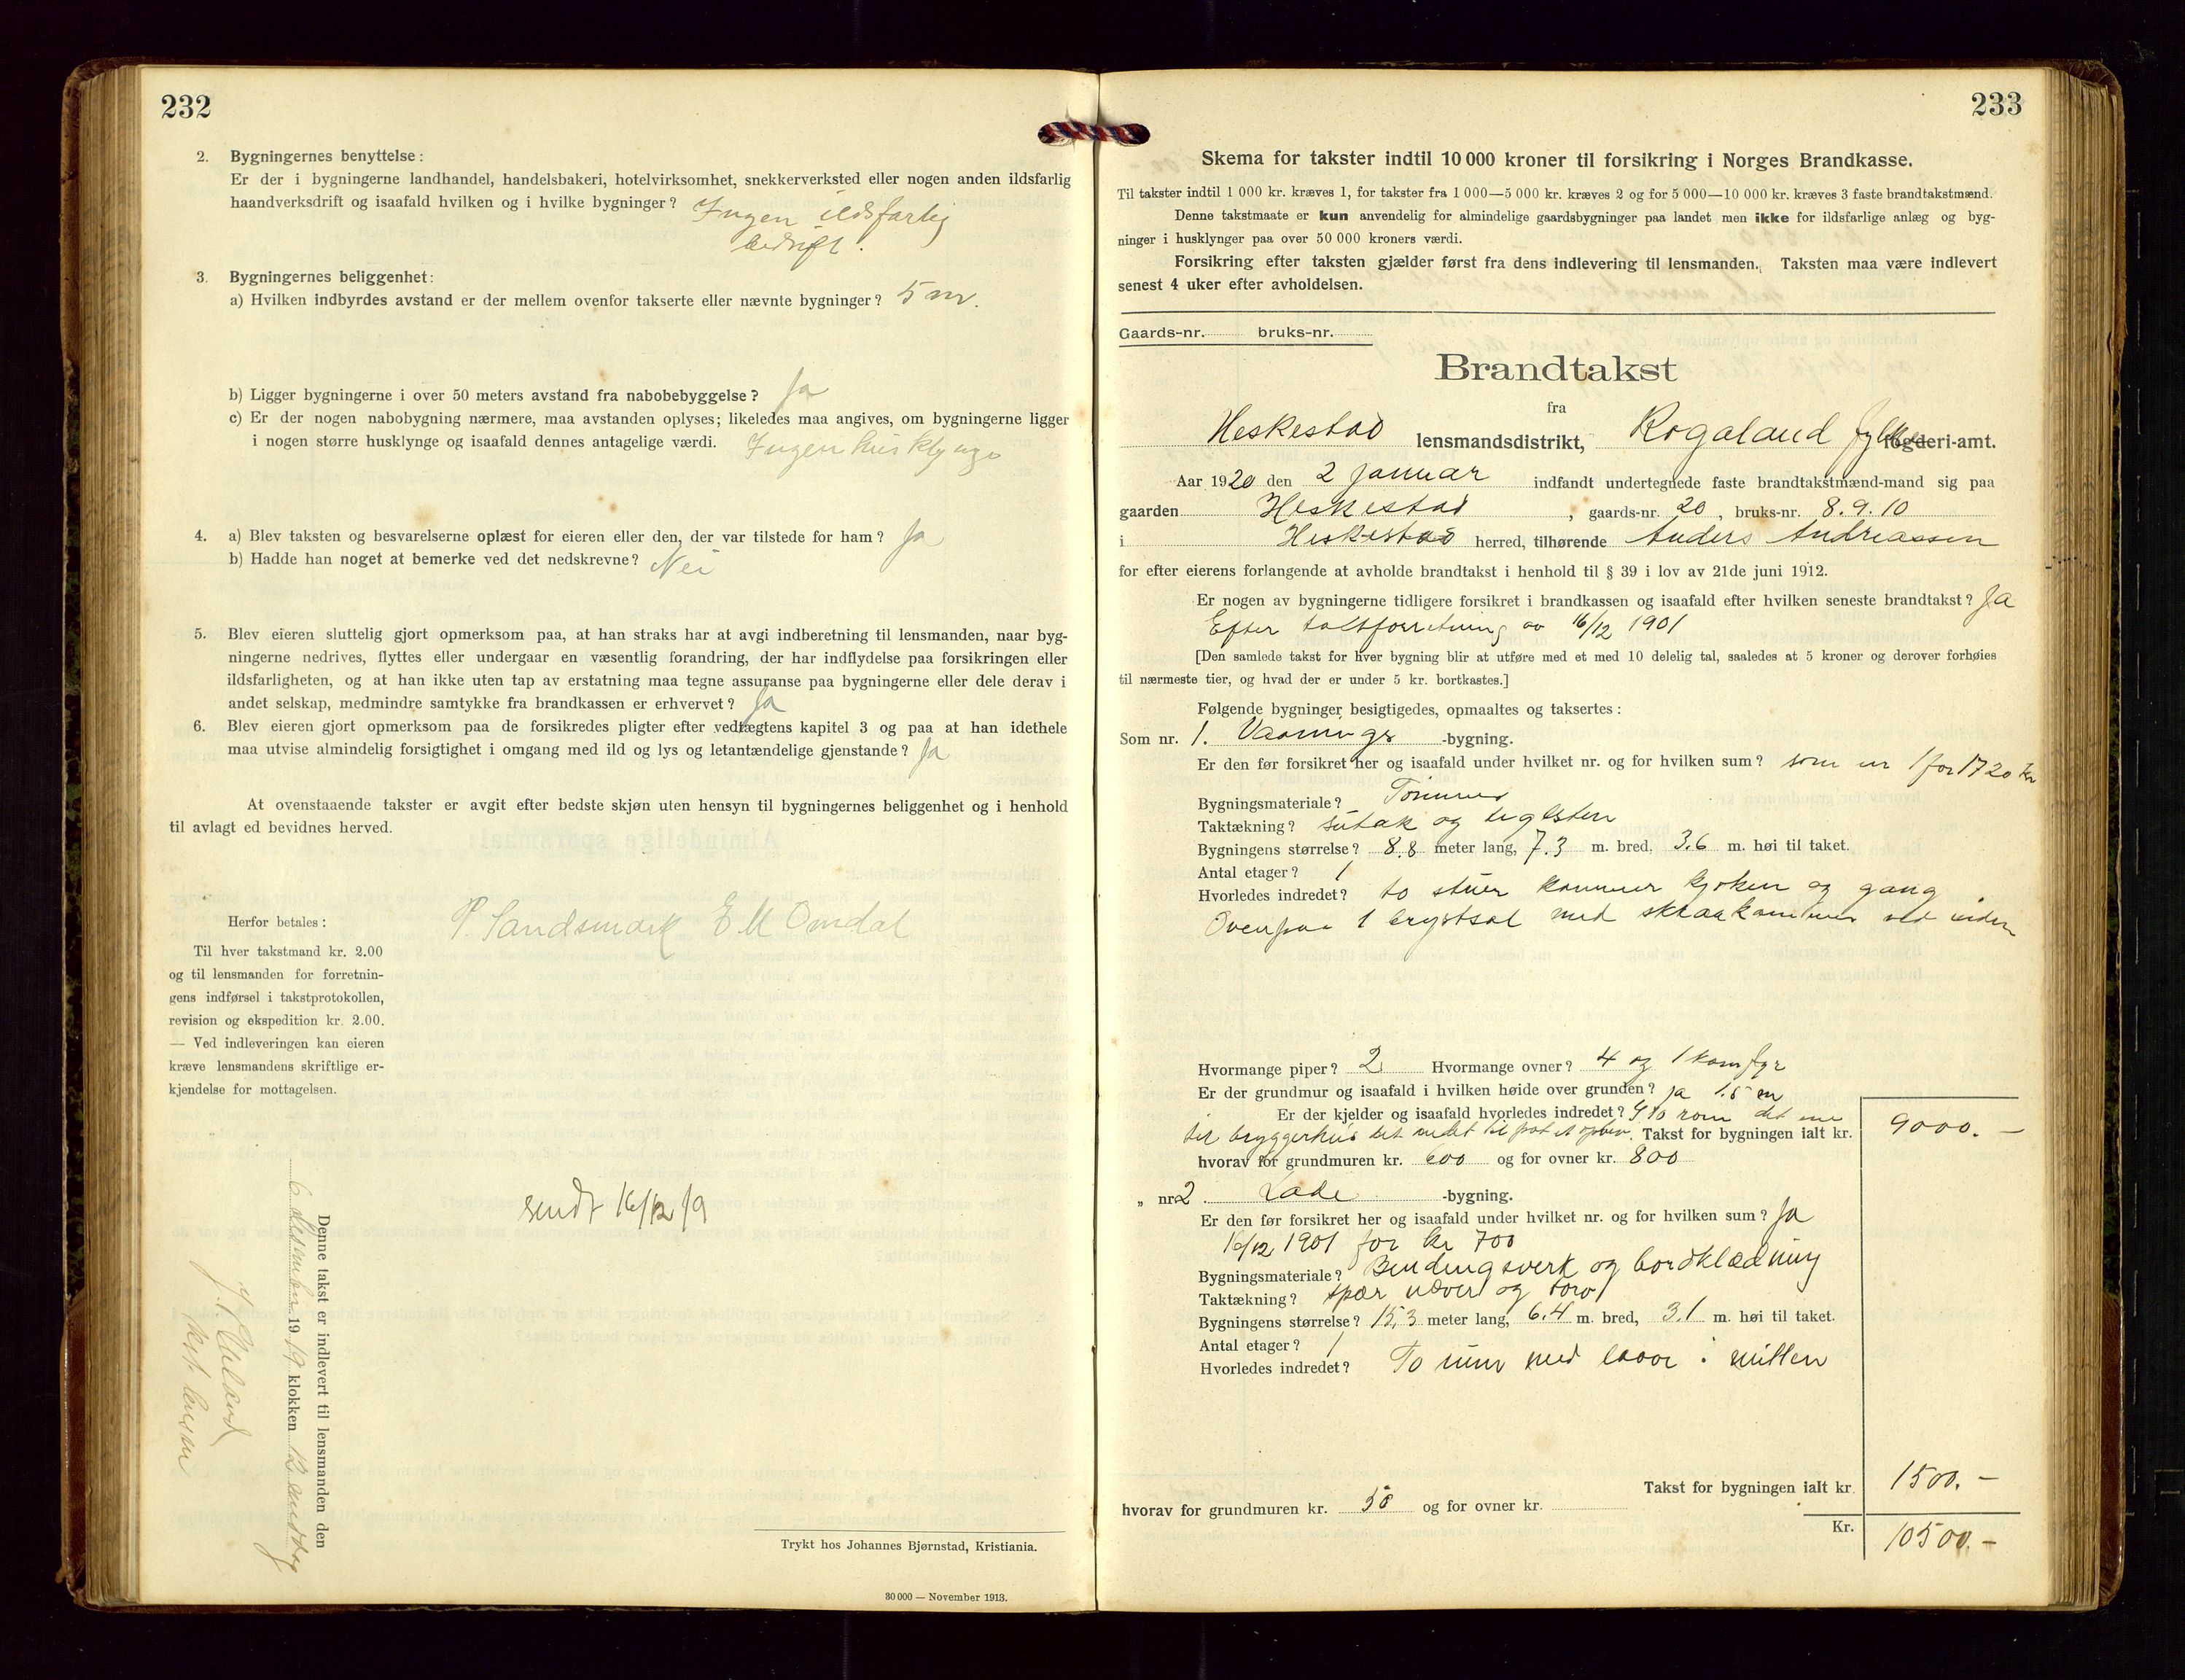 232
2. Bygningernes benyttelse:
Er der i bygningerne landhandel, handelsbakeri, hotelvirksomhet, snekkerverksted eller nogen anden ildsfarlig
haandverksdrift og isaafald hvilken og i hvilke bygninger? Ingen ildsfarlig
bedrift.
3. Bygningernes beliggenhet:
a) Hvilken indbyrdes avstand er der mellem ovenfor takserte eller nævnte bygninger? 5 m.
b) Ligger bygningerne i over 50 meters avstand fra nabobebyggelse? Ja
c) Er der nogen nabobygning nærmere, maa avstanden oplyses; likeledes maa angives, om bygningerne ligger
i nogen større husklynge og isaafald dennes antagelige værdi. Ingen husklynge
4. a) Blev taksten og besvarelserne oplæst for eieren eller den, der var tilstede for ham? Ja
b) Hadde han noget at bemerke ved det nedskrevne? Nei
5. Blev eieren sluttelig gjort opmerksom paa, at han straks har at avgi indberetning til lensmanden, naar byg-
ningerne nedrives, flyttes eller undergaar en væsentlig forandring, der har indflydelse paa forsikringen eller
ildsfarligheten, og at han ikke uten tap av erstatning maa tegne assuranse paa bygningerne eller dele derav i
andet selskap, medmindre samtykke fra brandkassen er erhvervet? Ja
6. Blev eieren gjort opmerksom paa de forsikredes pligter efter vedtægtens kapitel 3 og paa at han idethele
maa utvise almindelig forsigtighet i omgang med ild og lys og letantændelige gjenstande? Ja
At ovenstaaende takster er avgit efter bedste skjøn uten hensyn til bygningernes beliggenhet og i henhold
til avlagt ed bevidnes herved.
P. Sandsmark E M Omdal
Herfor betales:
Til hver takstmand kr. 2.00
og til lensmanden for forretnin-
gens indførsel i takstprotokollen,
revision og ekspedition kr. 2.00.
— Ved indleveringen kan eieren
kræve lensmandens skriftlige er-
kjendelse for mottagelsen.
sendt 16/12 19
Denne takst er indlevert til lensmanden den
6 desember 1919 klokken 12 middag
Trykt hos Johannes Bjørnstad, Kristiania.
30 000 — November 1913.
233
Skema for takster indtil 10 000 kroner til forsikring i Norges Brandkasse.
Til takster indtil 1 000 kr. kræves 1, for takster fra 1 000—5 000 kr. kræves 2 og for 5 000—10 000 kr. kræves 3 faste brandtakstmænd.
Denne takstmaate er kun anvendelig for almindelige gaardsbygninger paa landet men ikke for ildsfarlige anlæg og byg-
ninger i husklynger paa over 50 000 kroners værdi.
Forsikring efter taksten gjælder først fra dens indlevering til lensmanden. Taksten maa være indlevert
senest 4 uker efter avholdelsen.
Gaards-nr. bruks-nr.
Brandtakst
fra
Heskestad lensmandsdistrikt, Rogaland fylke fogderi-amt.
Aar 1920 den 2 Januar indfandt undertegnede faste brandtakstmænd-mand sig paa
gaarden Heskestad, gaards-nr. 20, bruks-nr. 8.9.10
i Heskestad herred, tilhørende Anders Andreassen
for efter eierens forlangende at avholde brandtakst i henhold til § 39 i lov av 21de juni 1912.
Er nogen av bygningerne tidligere forsikret i brandkassen og isaafald efter hvilken seneste brandtakst? Ja
Efter takstforretning av 16/12 1901
[Den samlede takst for hver bygning blir at utføre med et med 10 delelig tal, saaledes at 5 kroner og derover forhøies
til nærmeste tier, og hvad der er under 5 kr. bortkastes.]
Følgende bygninger besigtigedes, opmaaltes og taksertes:
Som nr. 1. Vaanings-bygning.
Er den før forsikret her og isaafald under hvilket nr. og for hvilken sum? som nr 1 for 1720 kr
Bygningsmateriale? Tømmer
Taktækning? sutak og teglsten
Bygningens størrelse? 8.8 meter lang, 7.3 m. bred, 3.6 m. høi til taket.
Antal etager? 1
Hvorledes indredet? to stuer kammer kjøken og gang
Ovenpaa 1 brystsal med skraakammer ved siden
Hvormange piper? 2 Hvormange ovner? 4 og 1 komfyr
Er der grundmur og isaafald i hvilken høide over grunden? ja 1.5 m
Er der kjelder og isaafald hvorledes indredet? to rom det ene
til bryggerhus det andet til Takst for bygningen ialt kr. 9000.—
hvorav for grundmuren kr. 600 og for ovner kr. 800
„ nr. 2 Lade-bygning.
Er den før forsikret her og isaafald under hvilket nr. og for hvilken sum? Ja
16/12 1901 for kr 700
Bygningsmateriale? Bindingsverk og bordklædning
Taktækning? spær næver og torv
Bygningens størrelse? 15,3 meter lang, 6.4 m. bred, 3.1 m. høi til taket.
Antal etager? 1
Hvorledes indredet? To rum med laave i mitten
Takst for bygningen ialt kr. 1500.—
hvorav for grundmuren kr. 50 og for ovner kr.
Kr. 10500.—